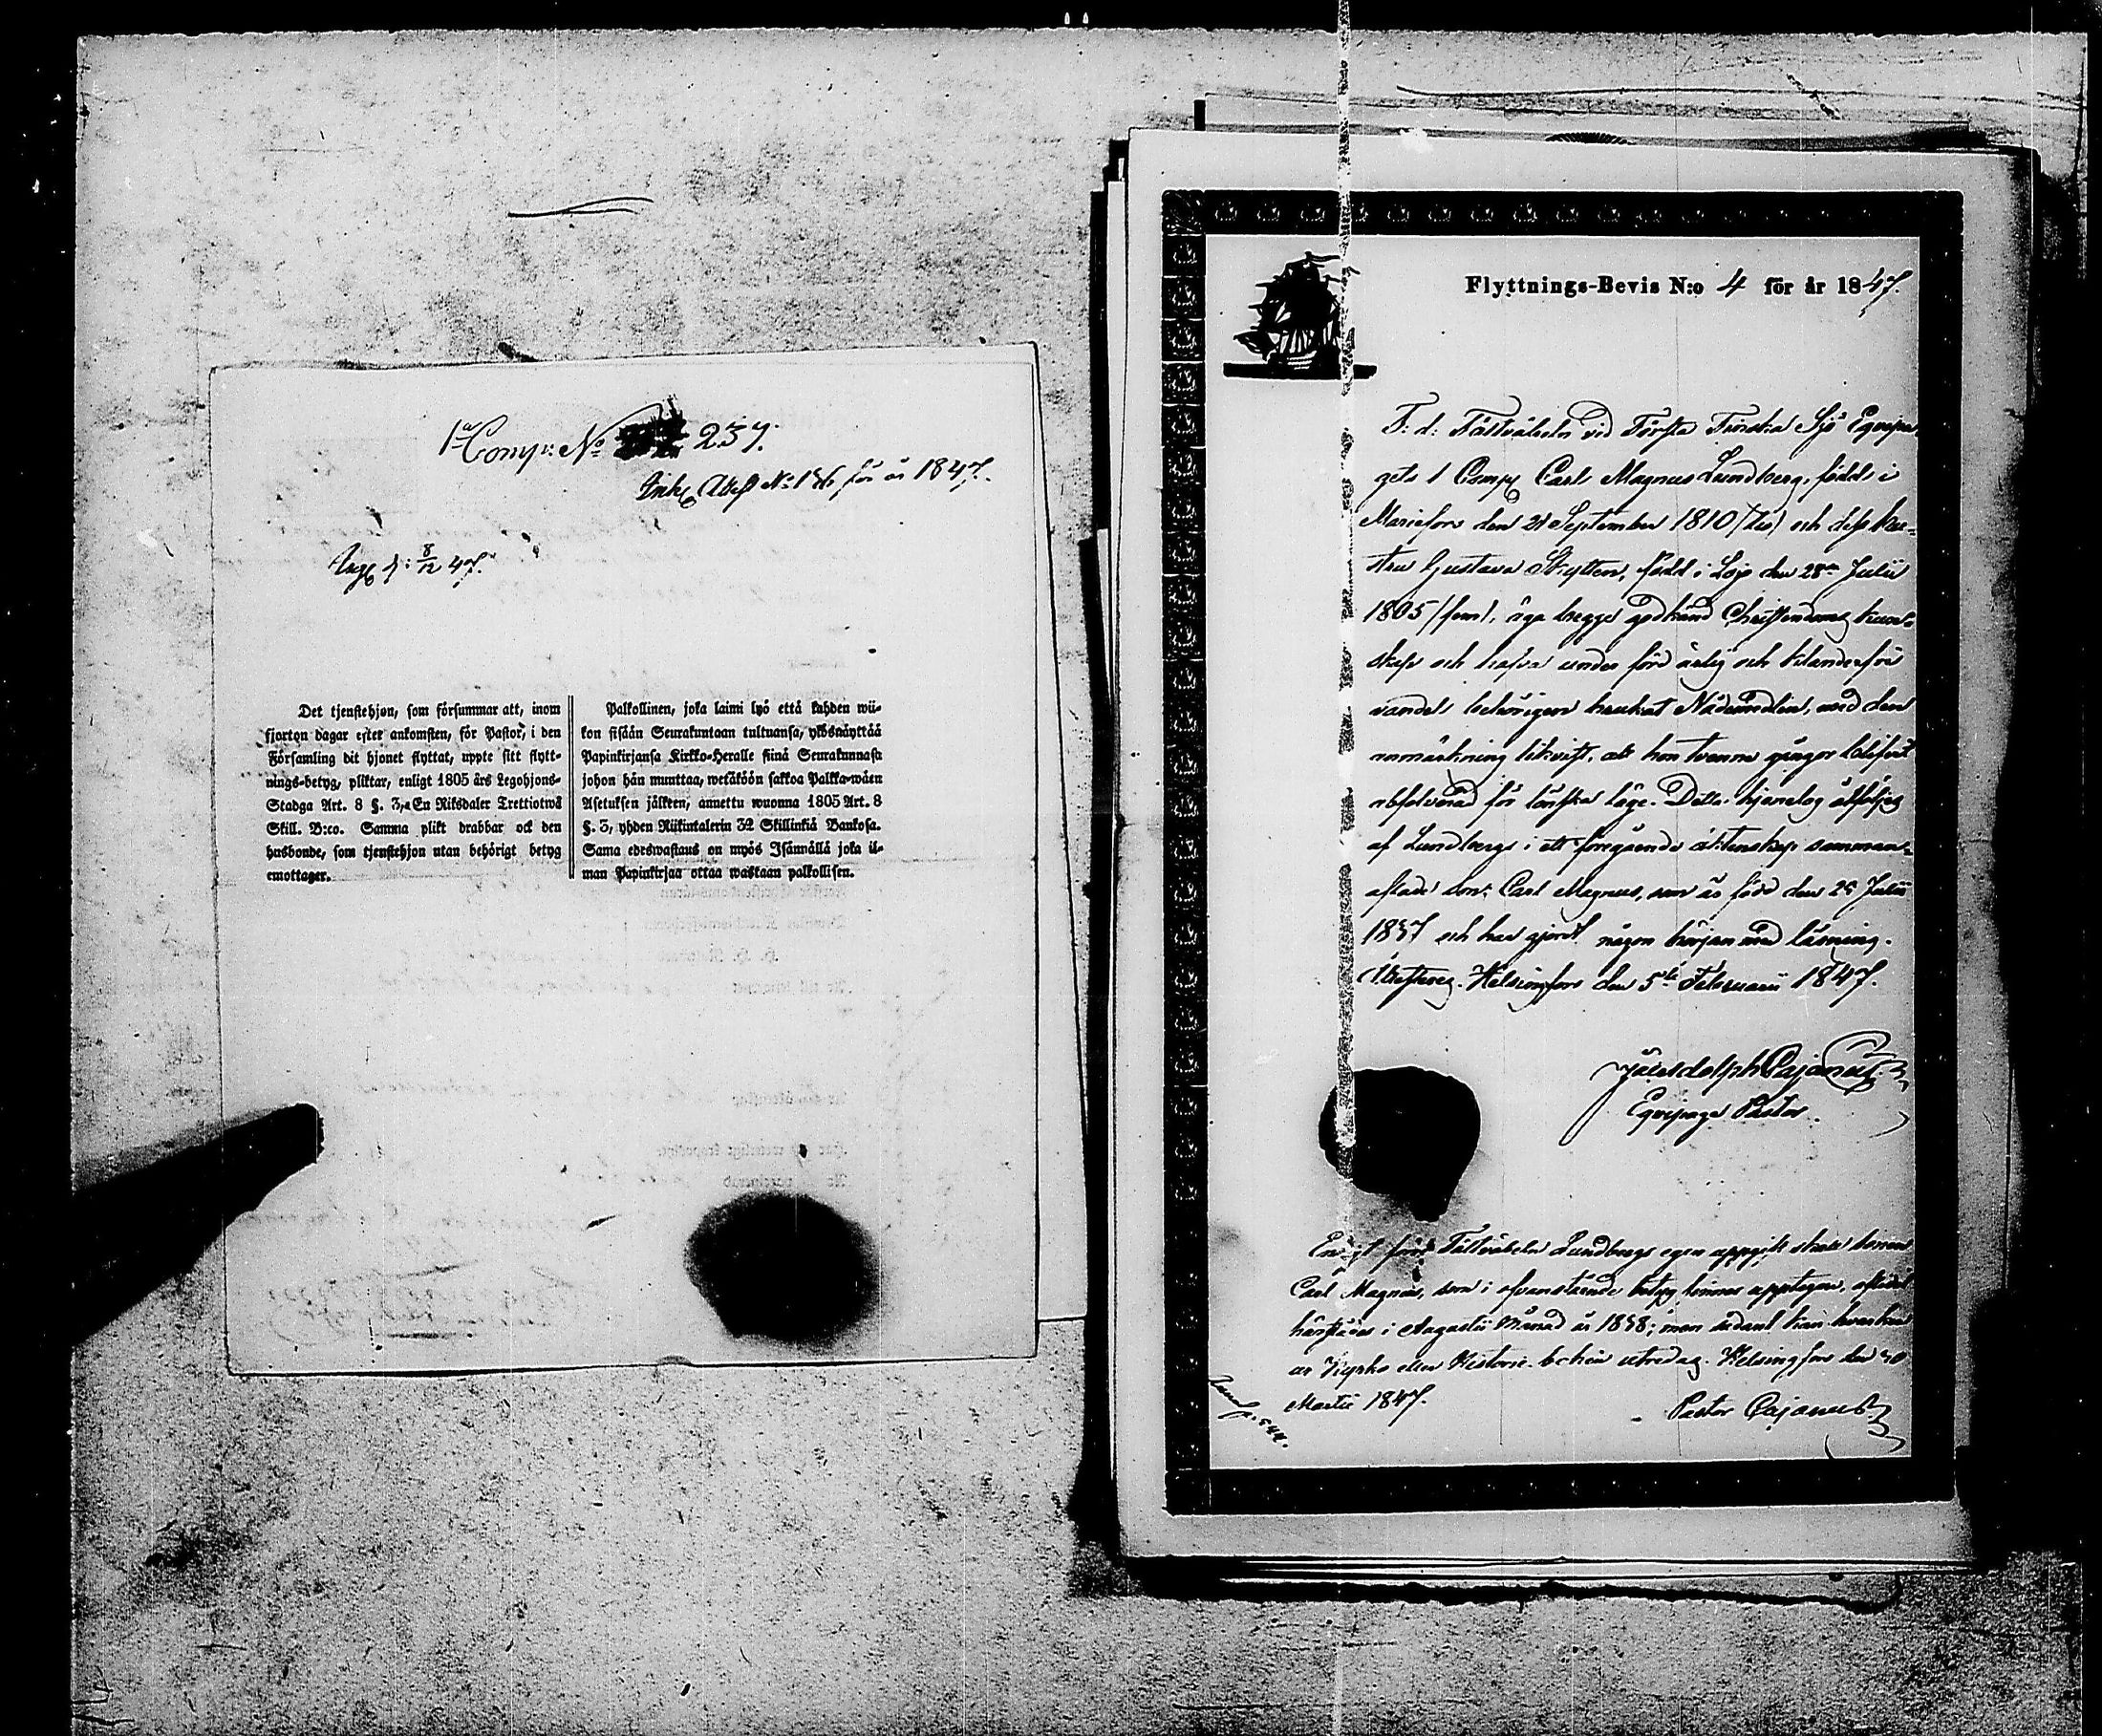 1a Comp: No 237.
Ink. Attest No 136 för år 1847.
Ing. d: 8/12 47.
Det tjenstehjon, som försummar att, inom
fjorton dagar efter ankomsten, för Pastor, i den
Församling dit hjonet flyttat, uppte sitt flytt-
nings-betyg, pliktar, enligt 1805 års Legohjons-
Stadga Art. 8 §. 3, En Riksdaler Trettiotwå
Skill. B:co. Samma plikt drabbar ock den
husbonde, som tjenstehjon utan behörigt betyg
emottager.
Palkollinen, joka laimi lyö että kahden wii-
kon sisään Seurakuntaan tultuansa, ylösnäyttää
Papinkirjansa Kirkko-Heralle siinä Seurakunnasa
johon hän muuttaa, wetäköön sakkoa Palkka-wäen
Asetuksen jälkeen, annettu wuonna 1805 Art. 8
§. 3, yhden Riikintalerin 32 Skillinkiä Bankosa.
Sama edeswastaus on myös Isännällä joka il-
man Papinkirjaa ottaa wastaan palkollisen.
Flyttnings-Bevis N:o 4 för år 1847.
F: d: Fältväbeln vid Första Finska Sjö Equipa
gets 1 Comp Carl Magnus Lundberg, född i
Mariefors den 21 September 1810 (tio) och dess hu-
stru Gustava Skytten, född i Lojo den 28de Julii
1805 (fem), äga begge godkänd Christendoms kun-
skap och hafva under förd ärlig och klanderfri
vandel behörigen brukat Nådemedlen, med den
anmärkning likvist, att hon tvenne gånger blifvit
absolverad för lönska läge. Detta hjonelag åtföljes
af Lundbergs i ett föregående äktenskap samman-
aflade son: Carl Magnus, som är född den 25 Julii
1837 och har gjort någon början med läsning.
Attesteras. Helsingfors den 5te Februarii 1847.
Pajanus
Equipage Pastor.
Enligt förre Fältväbeln Lundbergs egen uppgift skall sonen
Carl Magnus, som i ofvanstående betyg finnes upptagen, aflidit
härstädes i Augustii Månad år 1838; men sådant kan hvarken
ur Kyrko eller Historie-boken utredas. Helsingfors den 30
Martii 1847.
Pastor Pajanus
p. 544.